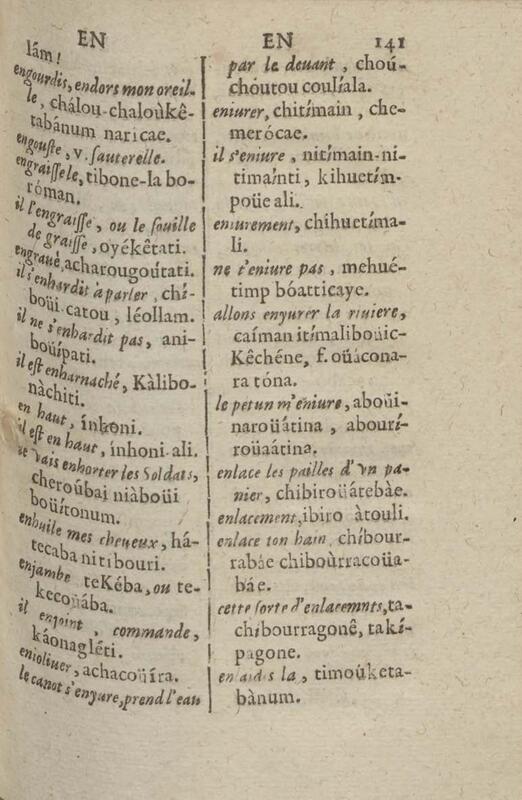 EN
lám!
engourdis, endors mon oreil-
le, chálou-chaloùkê-
tabánum naricae.
engouste, v. sauterelle.
engraisse le, tibone-la bo-
róman.
il l'engraisse, ou le souille
de graisse, oyékêtati.
engraué, acharougoútati.
il s'enhardit à parler, chí-
boüi catou, léollam.
il ne s'enhardit pas, ani-
boüípati.
il est enharnaché, Kàlibo-
nàchiti.
en haut, ínhoni.
il est en haut, ínhoni-ali.
je vais enhorter les Soldats,
cheroúbai niàboüi
boüítonum.
enhuile mes cheueux, há-
tecaba nitibouri.
enjambe teKéba, ou te-
kecoüába.
il enjoint, commande,
kàonagléti.
enioliuer, achacoüíra.
le canot s'enyure, prend l'eau
EN 141
par le deuant, choú-
choutou coulíala.
eniurer, chitímain, che-
merócae.
il s'eniure, nitímain-ni-
timaínti, kihuetím-
poüe ali.
eniurement, chíhuetíma-
li.
ne t'eniure pas, mehué-
timp bóatticaye.
allons enyurer la riuiere,
caíman itímaliboüic-
Kêchéne, f. oüácona-
ra tóna.
le petun m'eniure, aboüi-
naroüátina, abourí-
roüaátina.
enlace les pailles d'vn pa-
nier, chibiroüátebàe.
enlacement, ibiro àtouli.
enlace ton hain, chíbour-
rabáe chiboùrracoüa-
báe.
cette sorte d'enlacemnts, ta-
chibourragonê, takí-
pagone.
enlaidis la, timoùketa-
bànum.